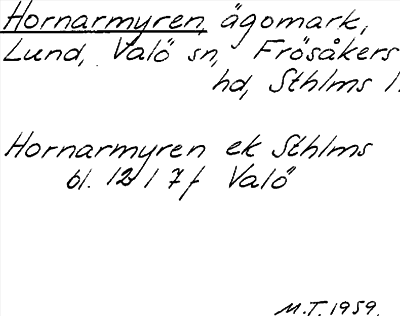 Hornarmyren, ägomark,
Lund, Valö sn, Frösåkers
hd, Sthlms l.
Hornarmyren ek Sthlms
bl. 12 I 7 f Valö
M.T. 1959.